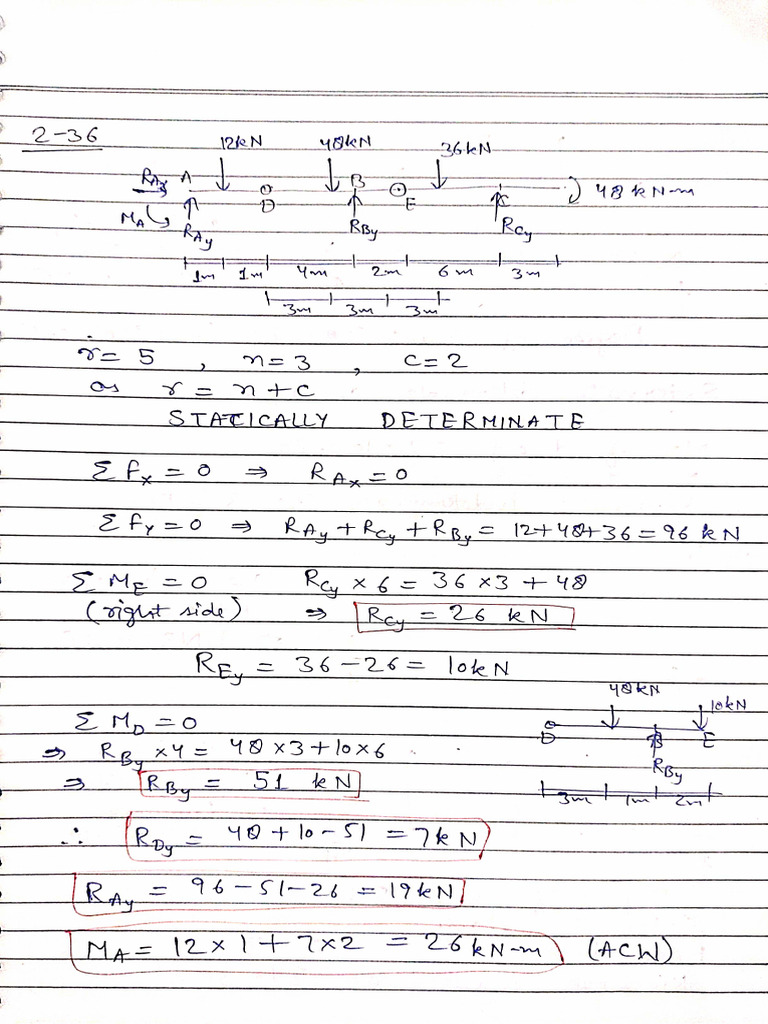 2-36
12kN 48kN 36kN
RAx A B 48 kN-m
MA D E C
RAy RBy RCy
1m 1m 4m 2m 6m 3m
3m 3m 3m
r = 5 , n = 3 , c = 2
as r = n + c
STATICALLY DETERMINATE
Σ fx = 0 ⇒ RAx = 0
Σ fY = 0 ⇒ RAy + RCy + RBy = 12+48+36 = 96 kN
Σ ME = 0 RCy × 6 = 36 × 3 + 48
(right side) ⇒ RCy = 26 kN
REy = 36 - 26 = 10kN
48kN
10kN
Σ MD = 0
D B E
⇒ RBy × 4 = 48 × 3 + 10 × 6
RBy
⇒ RBy = 51 kN
3m 1m 2m
∴ RDy = 48 + 10 - 51 = 7kN
RAy = 96 - 51 - 26 = 19kN
MA = 12 × 1 + 7 × 2 = 26 kN-m (ACW)